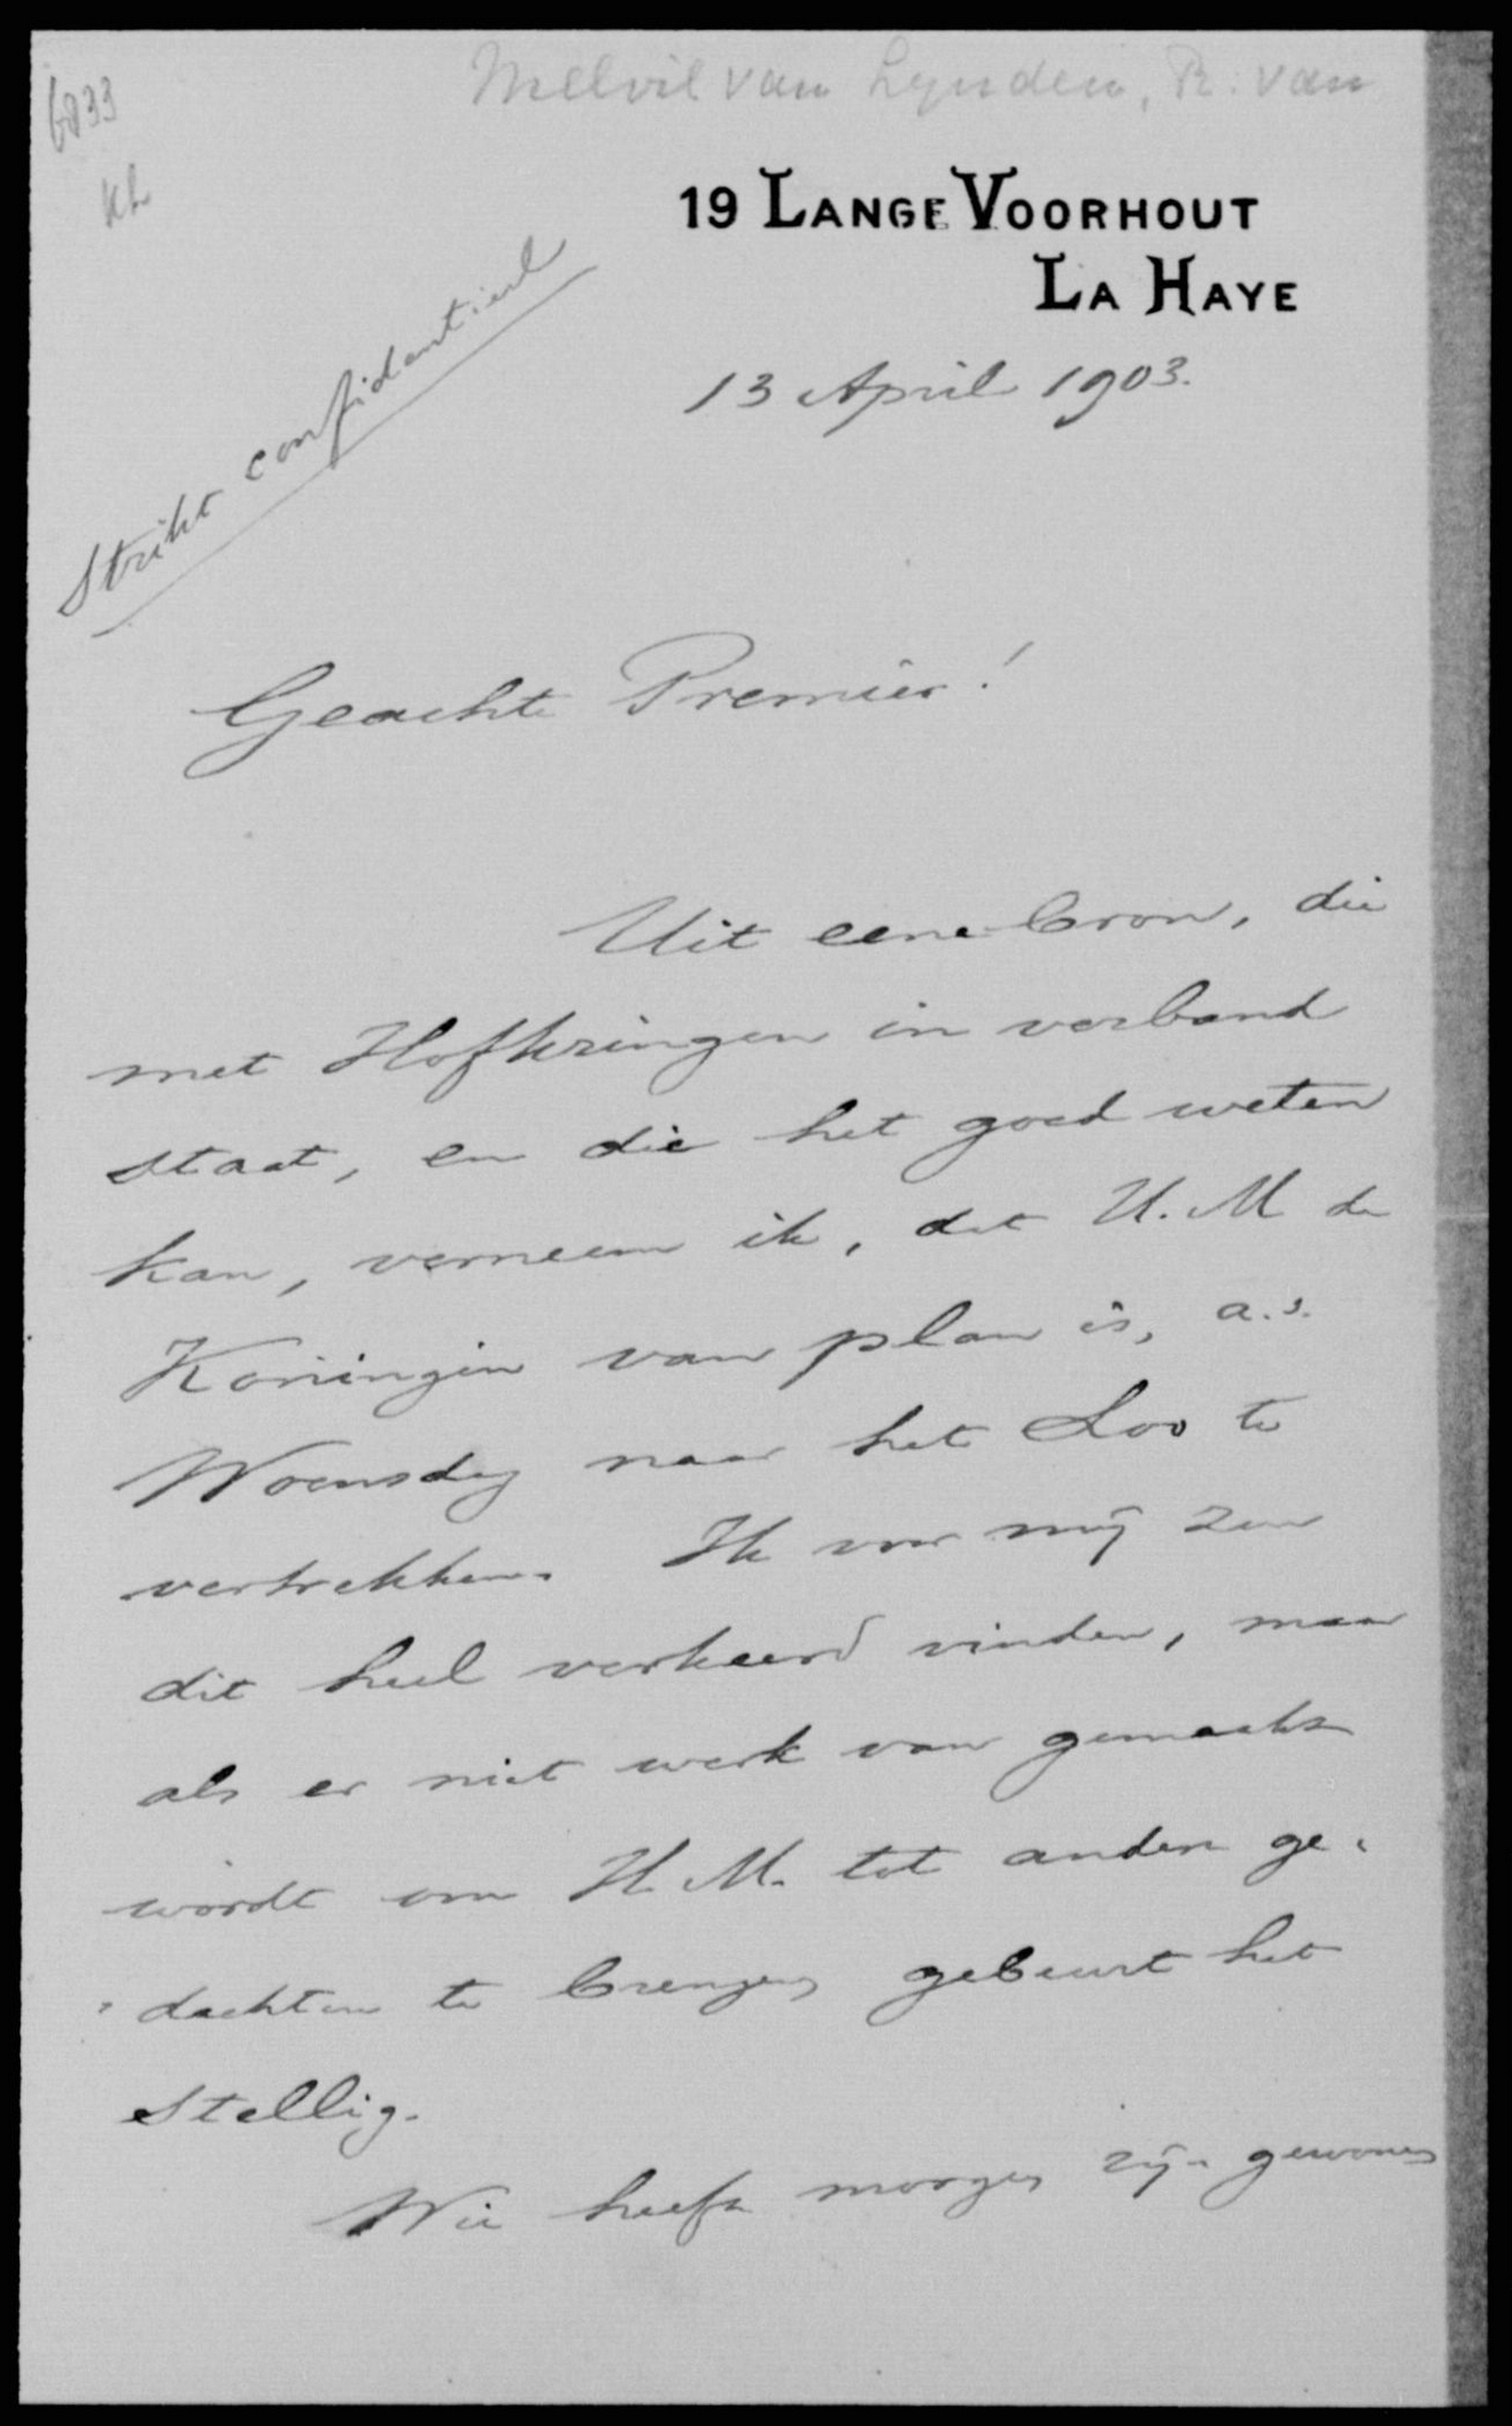 6833
Melvil van Lynden, R. van
kh
19 LANGE VOORHOUT
LA HAYE
Strikt confidentieel
13 April 1903.
Geachte Premier!
Uit eene bron, die
met Hofkringen in verband
staat, en die het goed weten
kan, verneem ik, dat H. M de
Koningin van plan is, a.s.
Woensdag naar het Loo te
vertrekken. Ik voor mij zou
dit heel verkeerd vinden, maar
als er niet werk van gemaakt
wordt om H. M. tot andere ge-
dachten te brengen gebeurt het
stellig.
Wie heeft morgen zijn gewonen